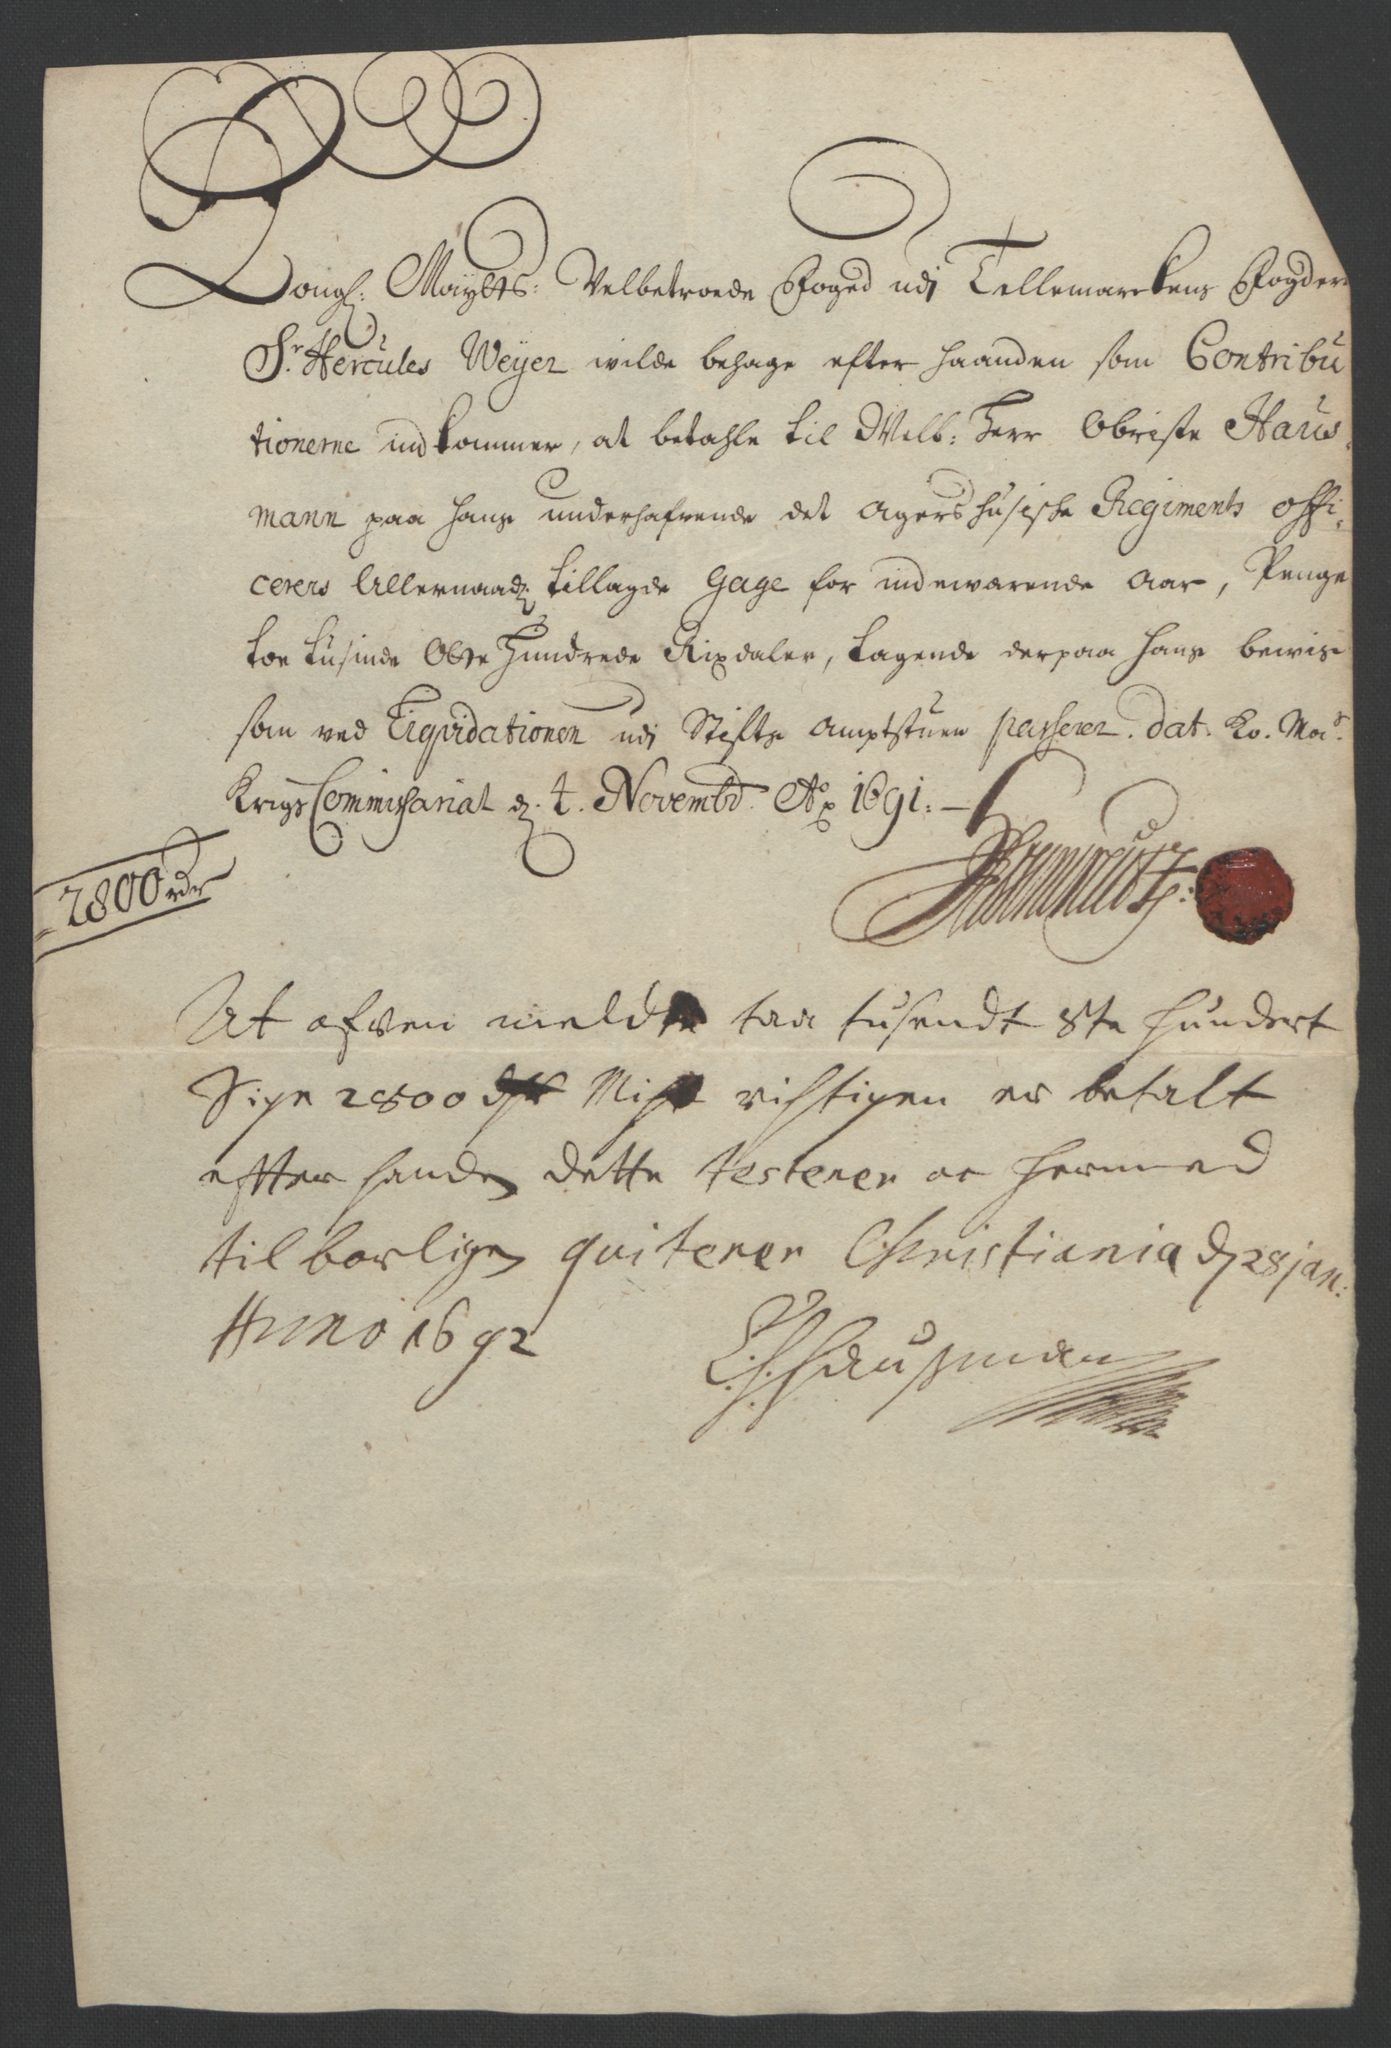 Kongl: Maÿtts: Velbetroede Foged udj Tellemarckens Fogderi
Sr. Hercules Weÿer wilde behage efter haanden som Contribu
tionerne indkommer, at betahle til Welb: Herr Obriste Haus,
mann paa hans underhafvende det Agershusiske Regiments offi,
cerers Allernaad: tillagde Gage for indewærende Aar, Penge
toe tusinde Otte Hundrede Rixdaler, tagende derpaa hans bewis
som ved Liqvidationen udj Stifts Amptstuen passerer. dat. Ko. Mas.
Krigs Commissariat d. 4. Novembr. Ao 1691:
2800 rdr
At ofven meldte taa tusendt 8te hundert
Sige 2800 Mig rigtigen er betalt
efter handen dette testerer oc hermed
tilborligen quiterer Christiania d 28 jan:
Anno 1692
Hausman